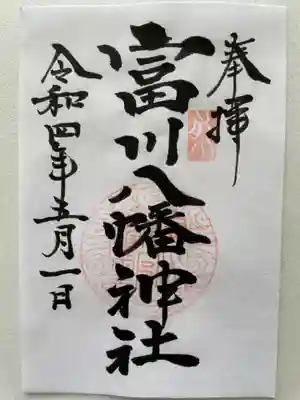 奉拝
富川八幡神社
令和四年五月一日